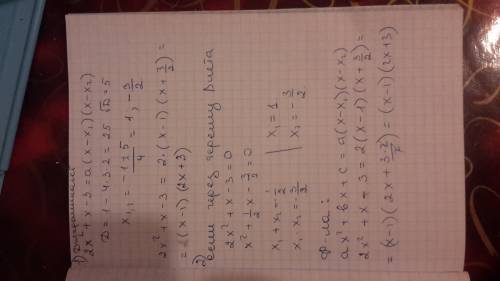 1) Дискриминант
2x² + x - 3 = a(x - x₁)(x - x₂)
D = 1 - 4·3·2 = 25 √D = 5
x₁,₂ = (-1 ± 5)/4 = 1, -3/2
2x² + x - 3 = 2·(x - 1)(x + 3/2) =
= (x - 1)(2x + 3)
2) если через теорему Виета
2x² + x - 3 = 0
x² + 1/2 x - 3/2 = 0
x₁ + x₂ = -1/2 | x₁ = 1
x₁·x₂ = -3/2 | x₂ = -3/2
Ф-ла:
ax² + bx + c = a(x - x₁)(x - x₂)
2x² + x - 3 = 2(x - 1)(x + 3/2) =
= (x - 1)(2x + 3·2/2) = (x - 1)(2x + 3)